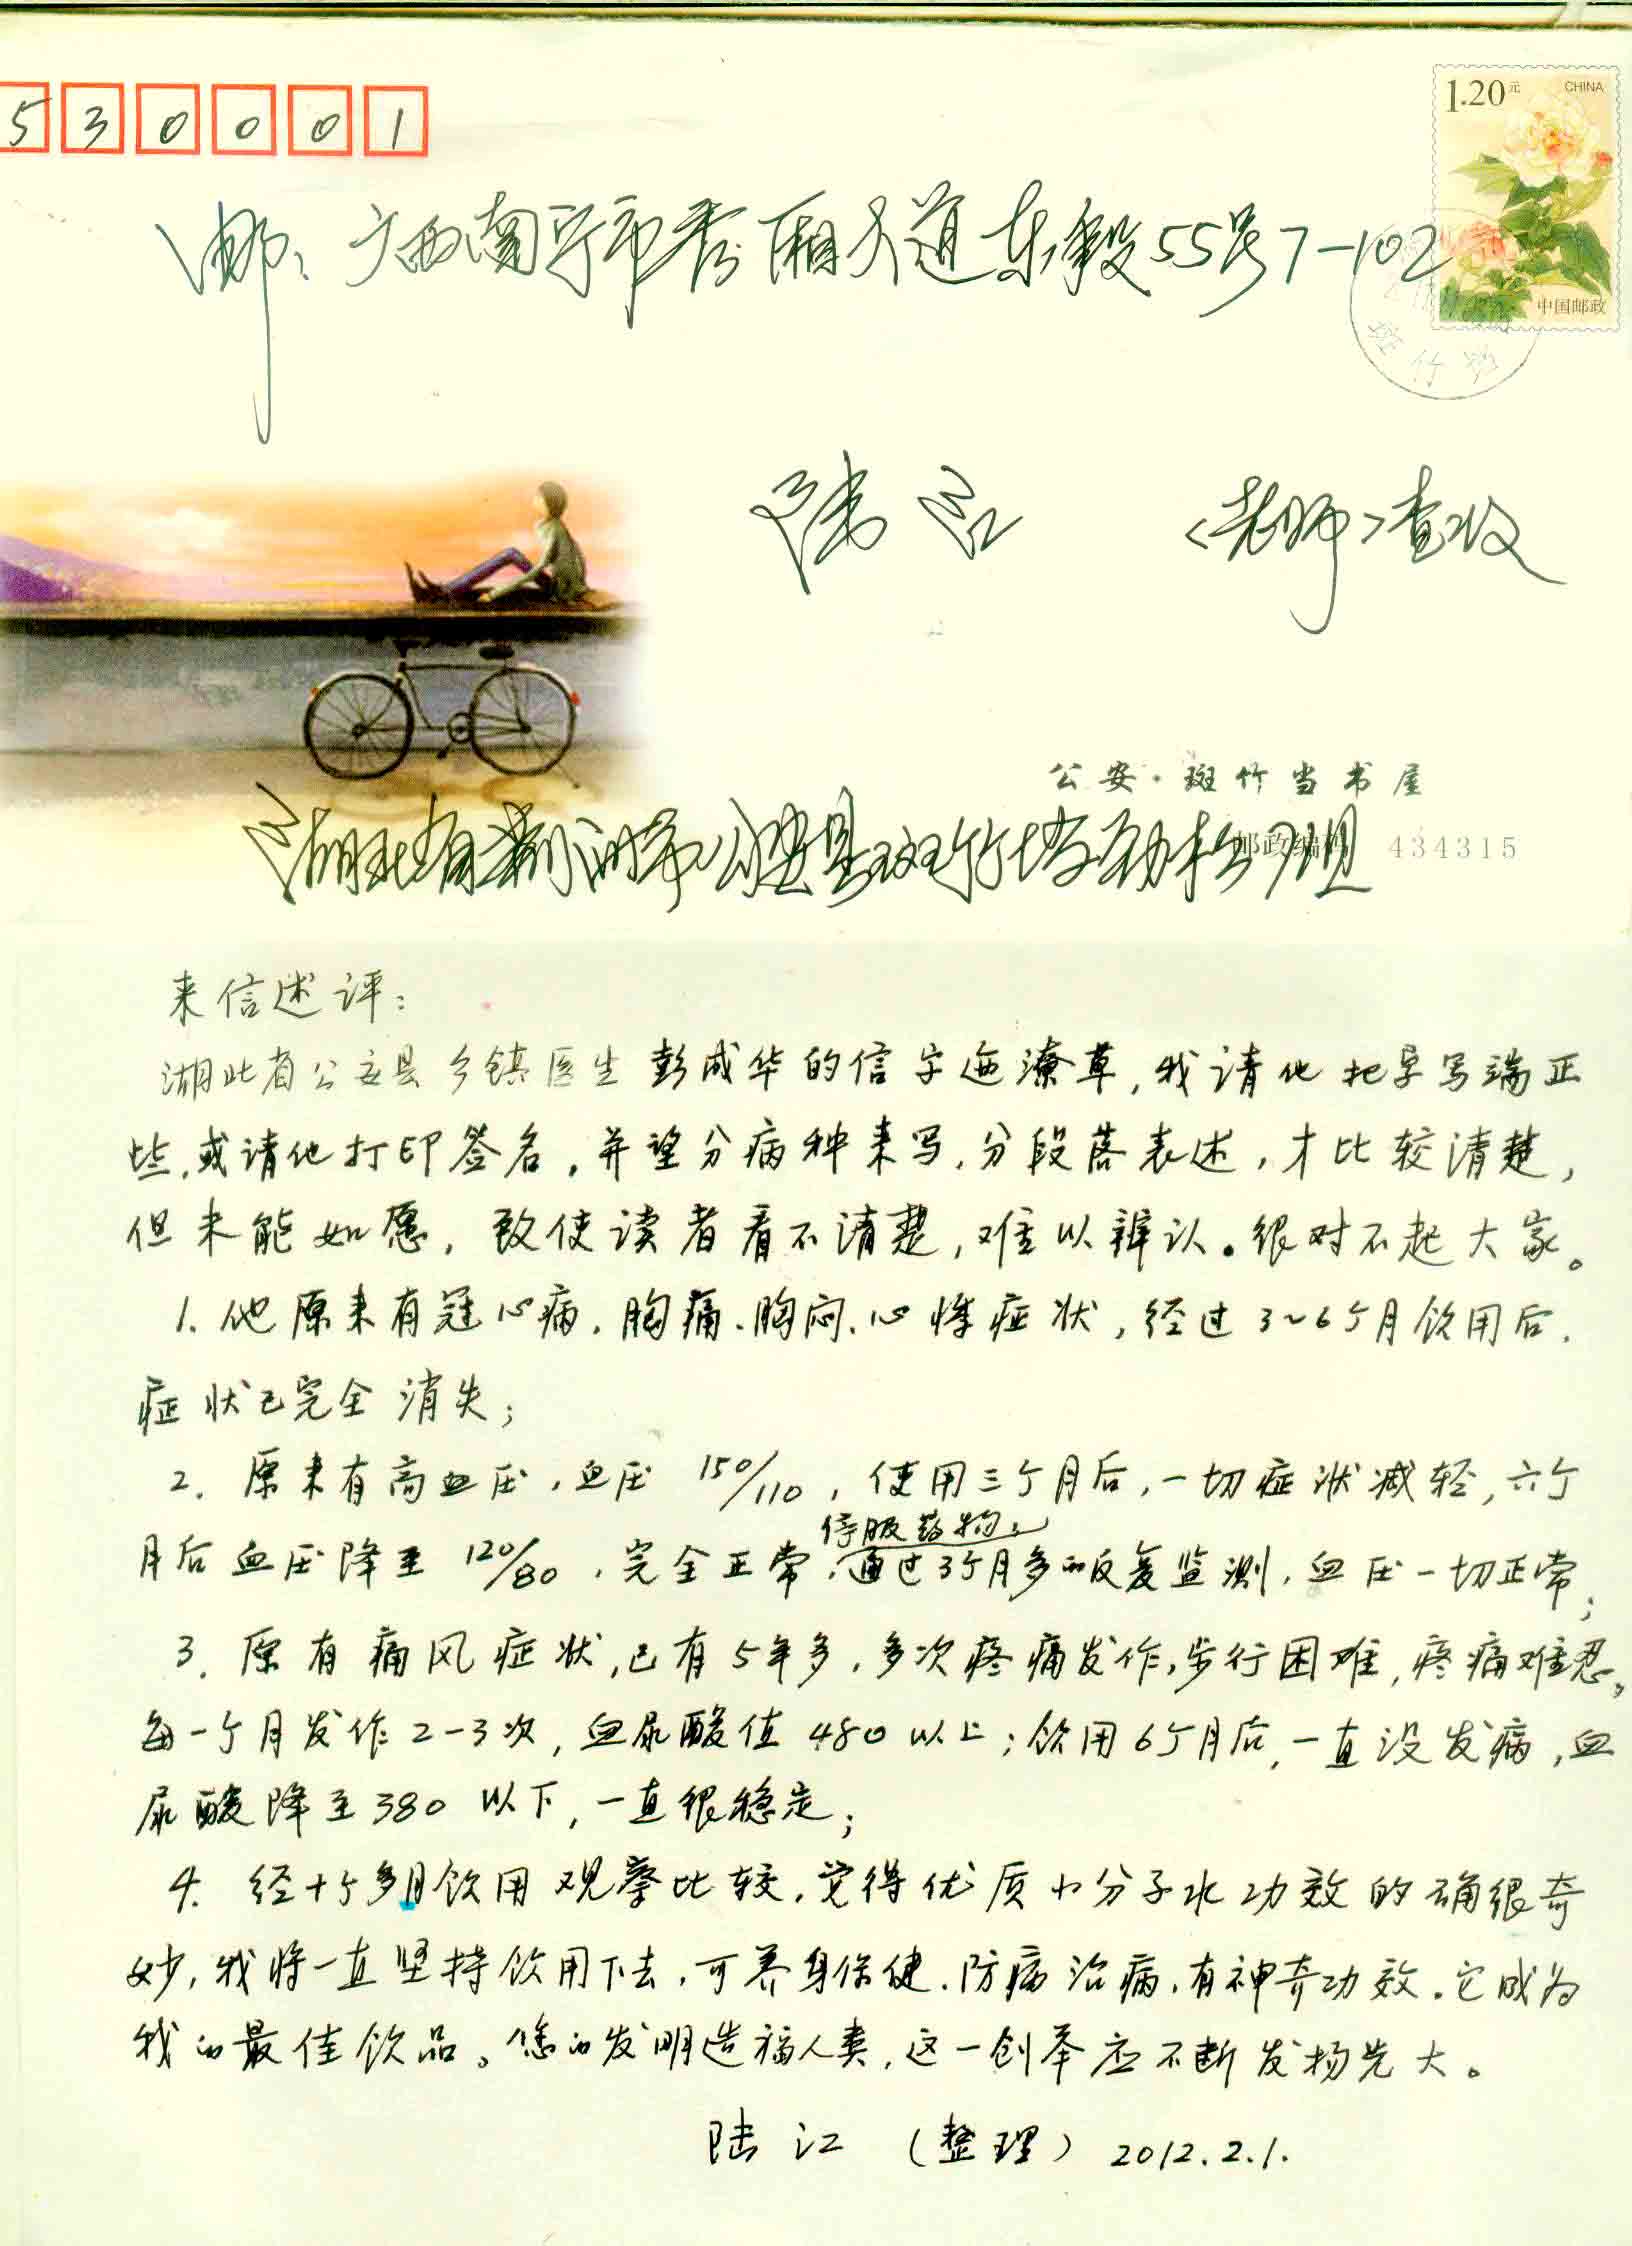 530001
1.20元 CHINA
邮:广西南宁市秀厢大道东段55号7-102
中国邮政
斑竹当
陆江 <老师>查收
公安·斑竹当书屋
邮政编码 434315
湖北省荆州市公安县斑竹当
来信述评:
湖北省公安县乡镇医生彭成华的信字迹潦草,我请他把字写端正
些,或请他打印签名,并望分病种来写,分段落表述,才比较清楚,
但未能如愿,致使读者看不清楚,难以辨认。很对不起大家。
1.他原来有冠心病,胸痛、胸闷、心悸症状,经过3~6个月饮用后,
症状已完全消失;
2.原来有高血压,血压150/110,使用三个月后,一切症状减轻,六个
停服药物,
月后血压降至120/80,完全正常,通过3个月多的反复监测,血压一切正常;
3.原有痛风症状,已有5年多,多次疼痛发作,步行困难,疼痛难忍。
每一个月发作2-3次,血尿酸值480以上;饮用6个月后,一直没发病,血
尿酸降至380以下,一直很稳定;
4.经十个多月饮用观察比较,觉得优质小分子水功效的确很奇
妙,我将一直坚持饮用下去,可养身保健、防病治病,有神奇功效。它成为
我的最佳饮品。您的发明造福人类,这一创举应不断发扬光大。
陆江(整理)2012.2.1.